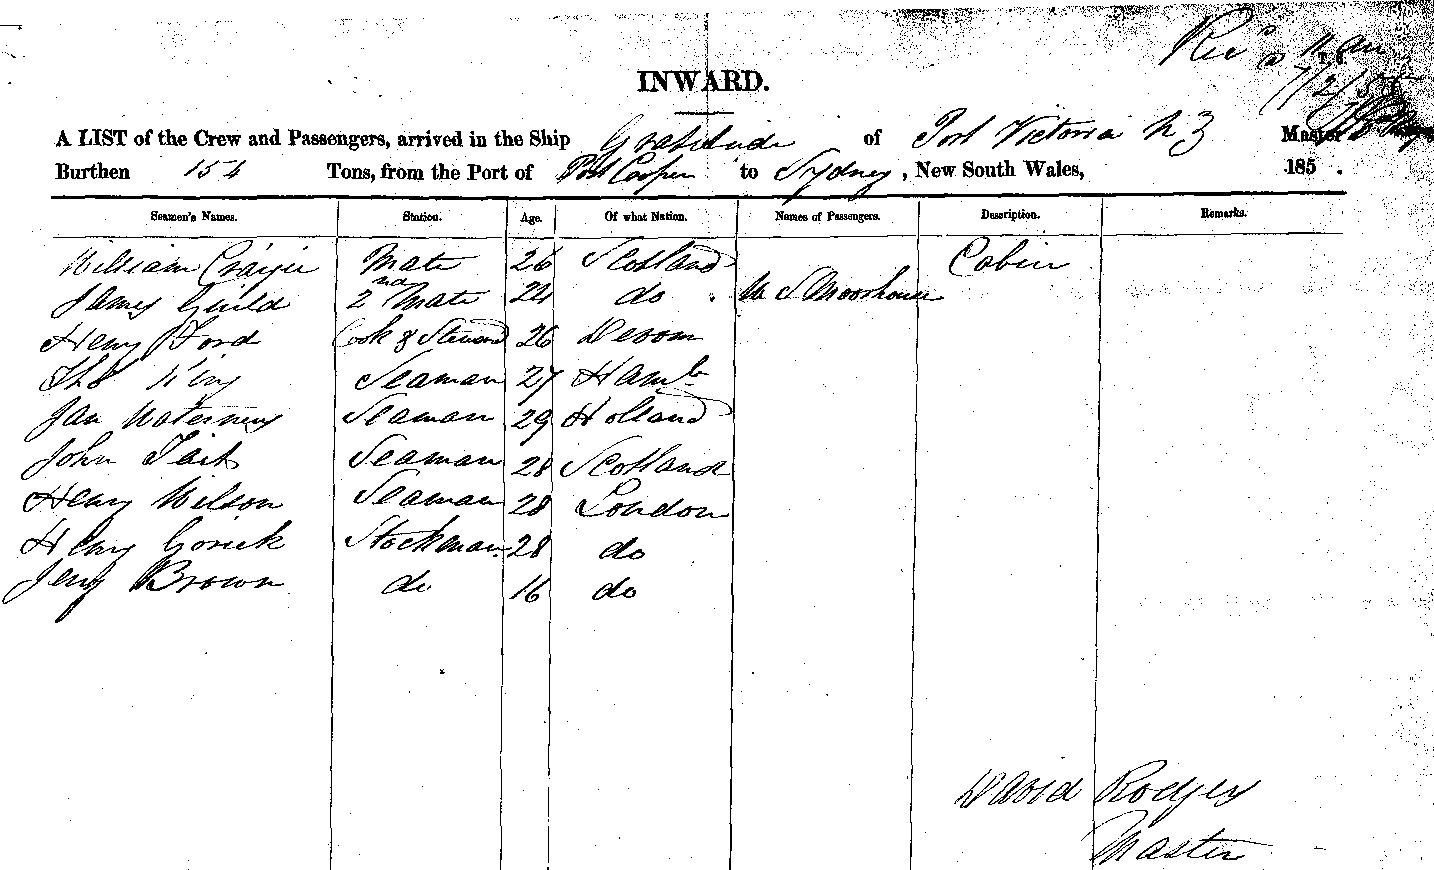 Rec'd 11 am
7/2/5
INWARD.
A LIST of the Crew and Passengers, arrived in the Ship Gratitude of Port Victoria N Z Master
Burthen 154 Tons, from the Port of Port Cooper to Sydney, New South Wales, 185 .
Seamen's Names. Station. Age. Of what Nation. Names of Passengers. Description. Remarks.
William Craigie Mate 26 Scotland Cabin
James Guild 2nd Mate 24 do Moorhouse
Henry Ford Cook & Steward 26 Devon
Tho King Seaman 27 Hamb
Jan Seaman 29 Holland
John Tait Seaman 28 Scotland
Henry Wilson Seaman 28 London
Henry Stockman 28 do
Jerry Brown do 16 do
David Rodgers
Master